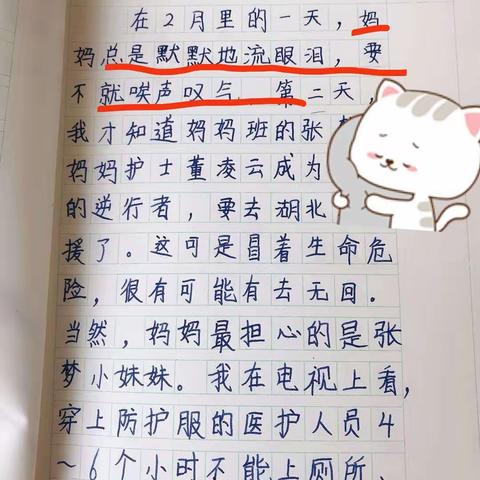 在2月里的一天，妈
妈总是默默地流眼泪，要
不就唉声叹气、第二天，
我才知道妈妈班的张
妈妈护士董凌云成为
的逆行者，要去湖北
援了。这可是冒着生命危
险，很有可能有去无回。
当然，妈妈最担心的是张
梦小妹妹。我在电视上看，
穿上防护服的医护人员4
~6个小时不能上厕所、